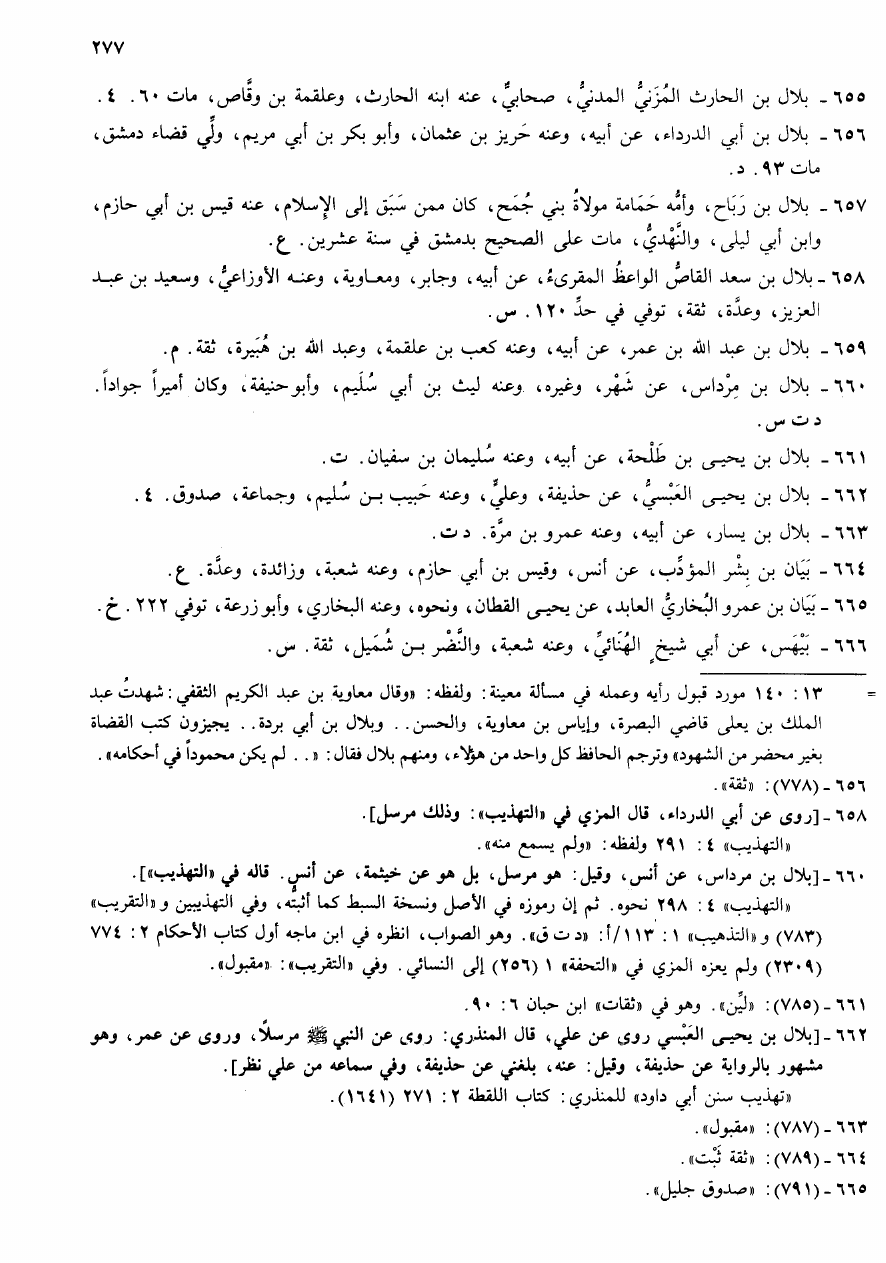 ٢٧٧
٦٥٥ ـ بلال بن الحارث المُزَنيُّ المدنيُّ، صحابيٌّ، عنه ابنه الحارث، وعلقمة بن وقَّاص، مات ٦٠. ٤.
٦٥٦ ـ بلال بن أبي الدرداء، عن أبيه، وعنه حَريز بن عثمان، وأبو بكر بن أبي مريم، ولِّي قضاء دمشق،
مات ٩٣. د.
٦٥٧ ـ بلال بن رَبَاح، وأمُّه حَمَامة مولاةُ بني جُمَح، كان ممن سَبَق إلى الإِسلام، عنه قيس بن أبي حازم،
وابن أبي ليلى، والنَّهْديُّ، مات على الصحيح بدمشق في سنة عشرين. ع.
٦٥٨ ـ بلال بن سعد القاصُّ الواعظُ المقرىءُ، عن أبيه، وجابر، ومعـاوية، وعنـه الأوزاعيُّ، وسعيد بن عبـد
العزيز، وعدَّة، ثقة، توفي في حدِّ ١٢٠. س.
٦٥٩ ـ بلال بن عبد الله بن عمر، عن أبيه، وعنه كعب بن علقمة، وعبد الله بن هُبَيرة، ثقة. م.
٦٦٠ ـ بلال بن مِرْداس، عن شَهْر، وغيره، وعنه ليث بن أبي سُلَيم، وأبو حنيفة، وكان أميراً جواداً.
د ت س.
٦٦١ ـ بلال بن يحيـى بن طَلْحة، عن أبيه، وعنه سُليمان بن سفيان. ت.
٦٦٢ ـ بلال بن يحيـى العَبْسيُّ، عن حذيفة، وعليٍّ، وعنه حَبيب بـن سُليم، وجماعة، صدوق. ٤.
٦٦٣ ـ بلال بن يسار، عن أبيه، وعنه عمرو بن مرَّة. د ت.
٦٦٤ ـ بَيَان بن بِشْر المؤدِّب، عن أنس، وقيس بن أبي حازم، وعنه شعبة، وزائدة، وعدَّة. ع.
٦٦٥ ـ بَيَان بن عمرو البُخاريُّ العابد، عن يحيـى القطان، ونحوه، وعنه البخاري، وأبو زرعة، توفي ٢٢٢. خ.
٦٦٦ ـ بَيْهَس، عن أبي شيخٍ الهُنَائيِّ، وعنه شعبة، والنَّضْر بـن شُمَيل، ثقة. س.
= ١٣: ١٤٠ مورد قبول رأيه وعمله في مسألة معينة: ولفظه: «وقال معاوية بن عبد الكريم الثقفي: شهدتُ عبد
الملك بن يعلى قاضي البصرة، وإياس بن معاوية، والحسن.. وبلال بن أبي بردة.. يجيزون كتب القضاة
بغير محضر من الشهود» وترجم الحافظ كل واحد من هؤلاء، ومنهم بلال فقال: «.. لم يكن محموداً في أحكامه».
٦٥٦ ـ (٧٧٨): «ثقة».
٦٥٨ ـ [روى عن أبي الدرداء، قال المزي في «التهذيب»: وذلك مرسل].
«التهذيب» ٤: ٢٩١ ولفظه: «ولم يسمع منه».
٦٦٠ ـ [بلال بن مرداس، عن أنس، وقيل: هو مرسل، بل هو عن خيثمة، عن أنس. قاله في «التهذيب»].
«التهذيب» ٤: ٢٩٨ نحوه. ثم إن رموزه في الأصل ونسخة السبط كما أثبتُّه، وفي التهذيبين و «التقريب»
(٧٨٣) و «التذهيب» ١: ١١٣/أ: «د ت ق». وهو الصواب، انظره في ابن ماجه أول كتاب الأحكام ٢: ٧٧٤
(٢٣٠٩) ولم يعزه المزي في «التحفة» ١ (٢٥٦) إلى النسائي. وفي «التقريب»: «مقبول».
٦٦١ ـ (٧٨٥): «ليِّن». وهو في «ثقات» ابن حبان ٦: ٩٠.
٦٦٢ ـ [بلال بن يحيـى العَبْسي روى عن علي، قال المنذري: روى عن النبي ﷺ مرسلًا، وروى عن عمر، وهو
مشهور بالرواية عن حذيفة، وقيل: عنه، بلغني عن حذيفة، وفي سماعه من علي نظر].
«تهذيب سنن أبي داود» للمنذري: كتاب اللقطة ٢: ٢٧١ (١٦٤١).
٦٦٣ ـ (٧٨٧): «مقبول».
٦٦٤ ـ (٧٨٩): «ثقة ثَبْت».
٦٦٥ ـ (٧٩١): «صدوق جليل».